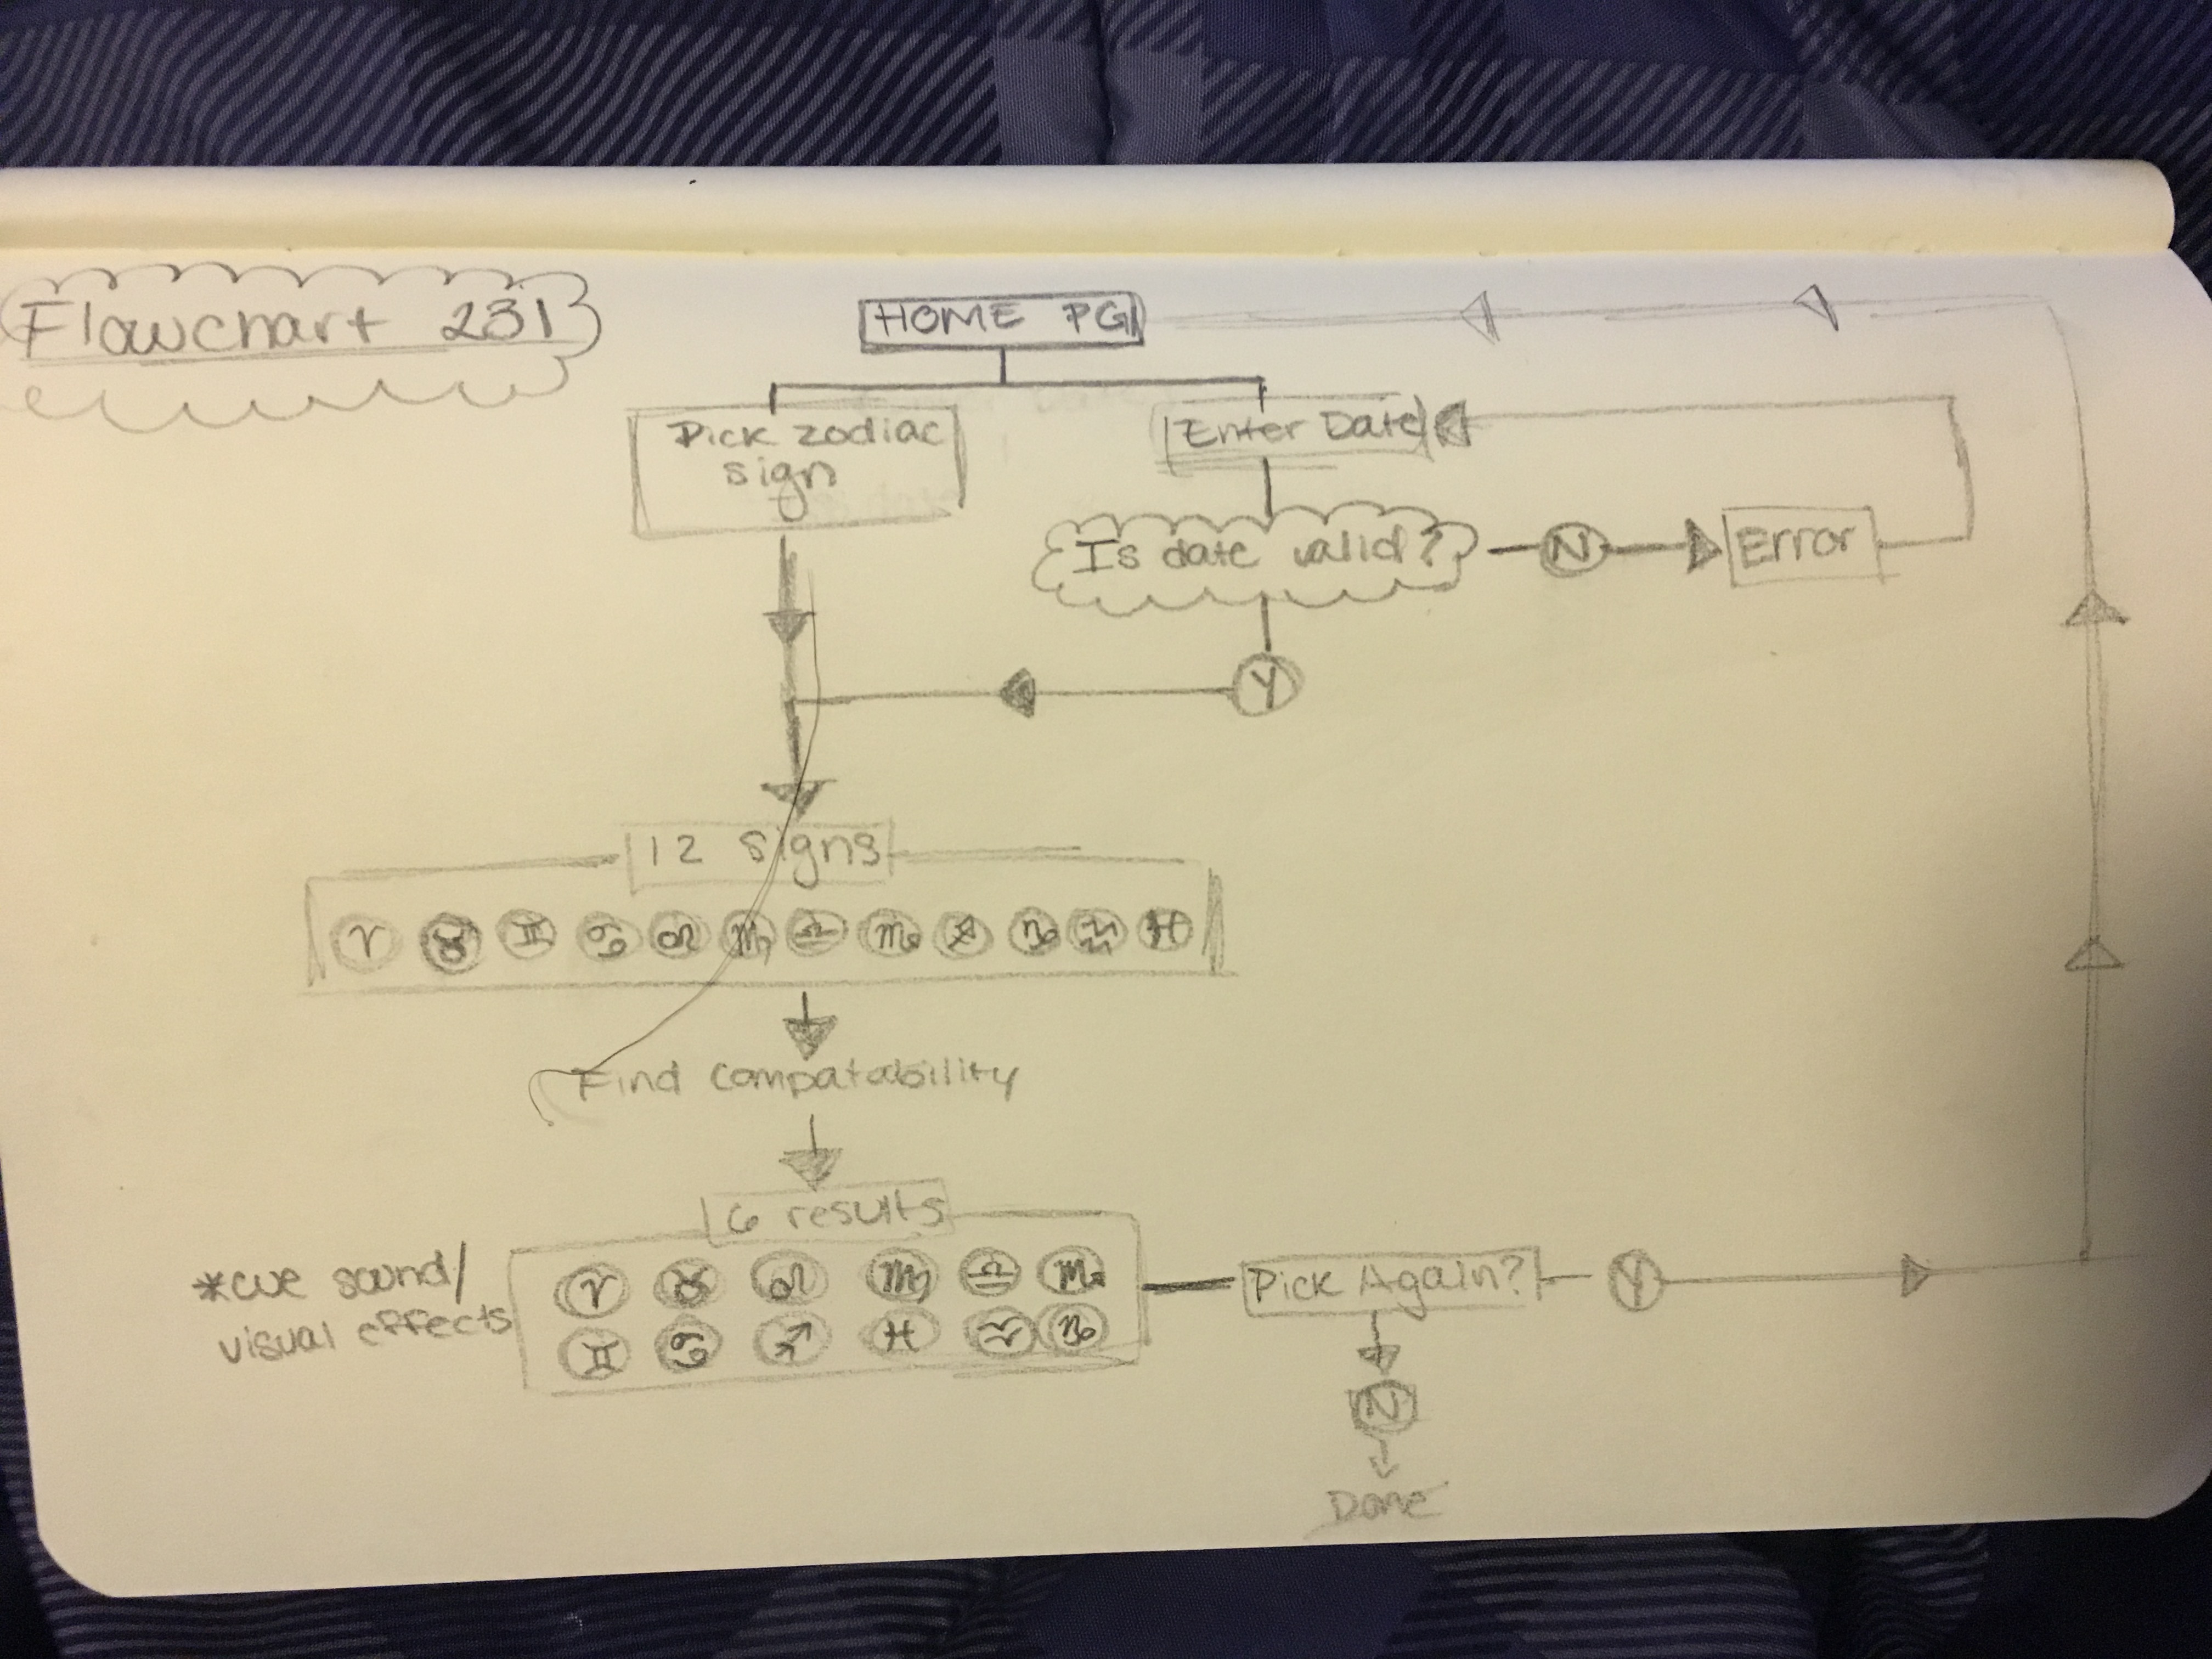 Flowchart 231
HOME PG
Pick zodiac
sign
Enter Date
Is date valid?
N
Error
Y
12 signs
♈ ♉ ♊ ♋ ♌ ♍ ♎ ♏ ♐ ♑ ♒ ♓
Find compatability
6 results
*cue sound/
visual effects
♈ ♉ ♌ ♍ ♎ ♏
♊ ♋ ♐ ♓ ♒ ♑
Pick Again?
Y
N
Done